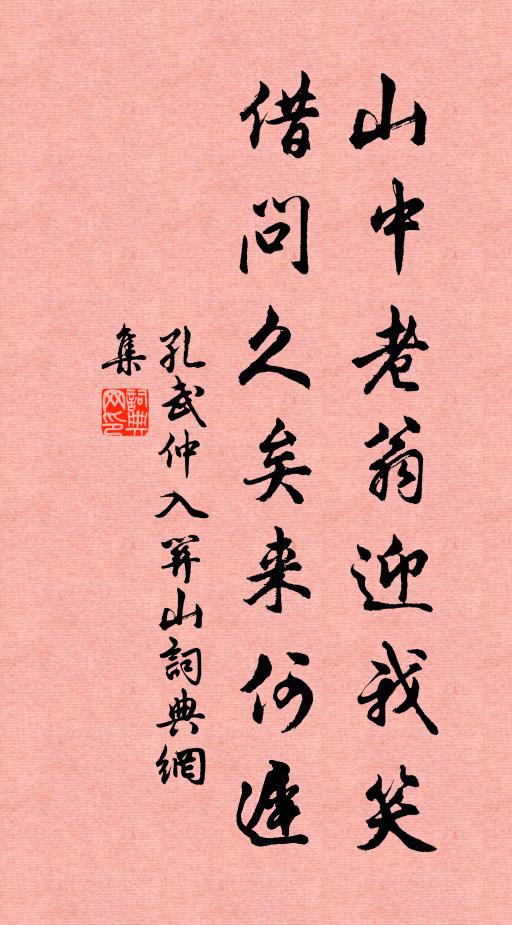 山中老翁迎我笑
借问久矣来何遲
孔武仲入羿山詞典網
集
詞典网印